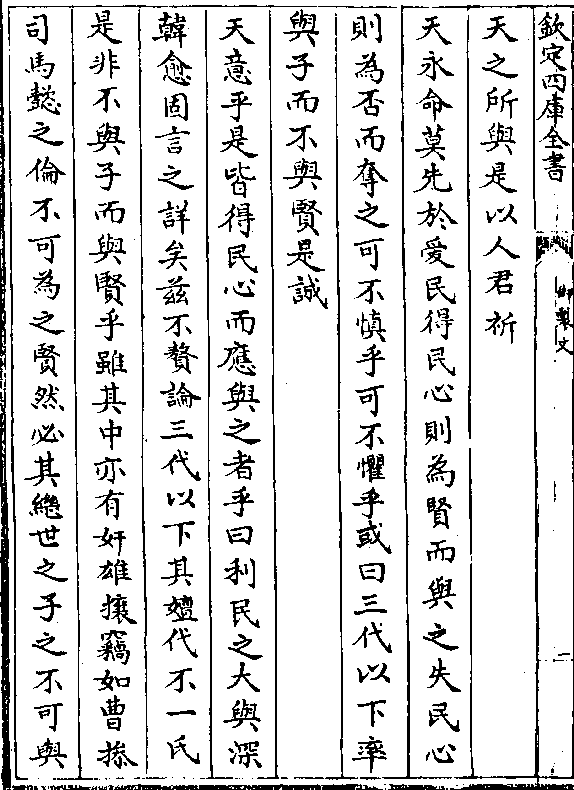 欽定四庫全書
御製文
二
天之所與是以人君祈
天永命莫先於愛民得民心則為賢而與之失民心
則為否而奪之可不慎乎可不懼乎或曰三代以下率
與子而不與賢是誠
天意乎是皆得民心而應與之者乎曰利民之大與深
韓愈固言之詳矣茲不贅論三代以下其嬗代不一氏
是非不與子而與賢乎雖其中亦有奸雄攘竊如曹操
司馬懿之倫不可為之賢然必其繼世之子之不可與